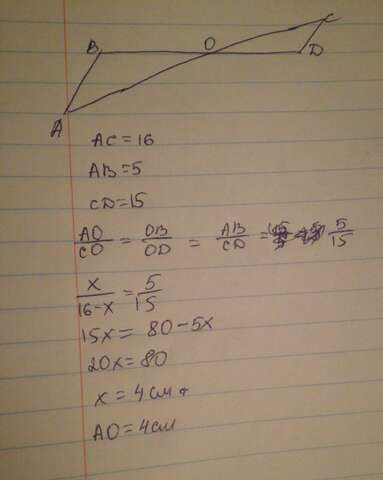 B O C D
A
AC = 16
AB = 5
CD = 15
AO/CO = OB/OD = AB/CD = 5/15
x/16-x = 5/15
15x = 80-5x
20x = 80
x = 4 см
AO = 4 см